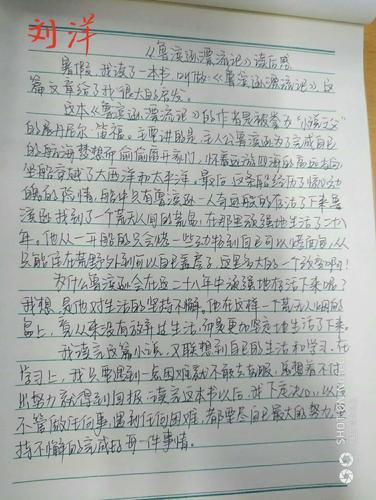 刘洋
《鲁滨逊漂流记》读后感
暑假,我读了一本书,叫做《鲁滨逊漂流记》,这
篇文章给了我很大的启发。
这本《鲁滨逊漂流记》的作者是被誉为“小说之父”
的丹尼尔·笛福。主要讲的是:主人公鲁滨逊为了完成自己
的航海梦想而偷偷离开家门,怀着远游四海的高远志向
坐船穿越了大西洋和太平洋。最后,这条船经历了惊心动
魄的险情,船中只有鲁滨逊一人奇迹般的存活了下来鲁
滨逊找到了一个荒无人间的荒岛,在那里顽强地生活了二十八
年。他从一开始的只会一些到自己可以,从
只能住在荒野外到可以自己盖房子,这是多大的一个改变啊!
为什么鲁滨逊会在这二十八年中顽强地存活下来呢?
我想,是他对生活的坚持不懈。他在这样一个荒无人烟的
岛上,看从来没有放弃过生活,而是更加坚定地生活了下来。
我读完这篇小说,又联想到自己的生活和学习。在
学习上,我只要遇到一点困难就不敢去克服,总想着不付
出努力就得到回报。读完这本书以后,我下定决心,以后
不管做任何事,遇到任何困难,都要尽自己最大的努力,坚
持不懈的完成好每一件事情。
SHOT ON